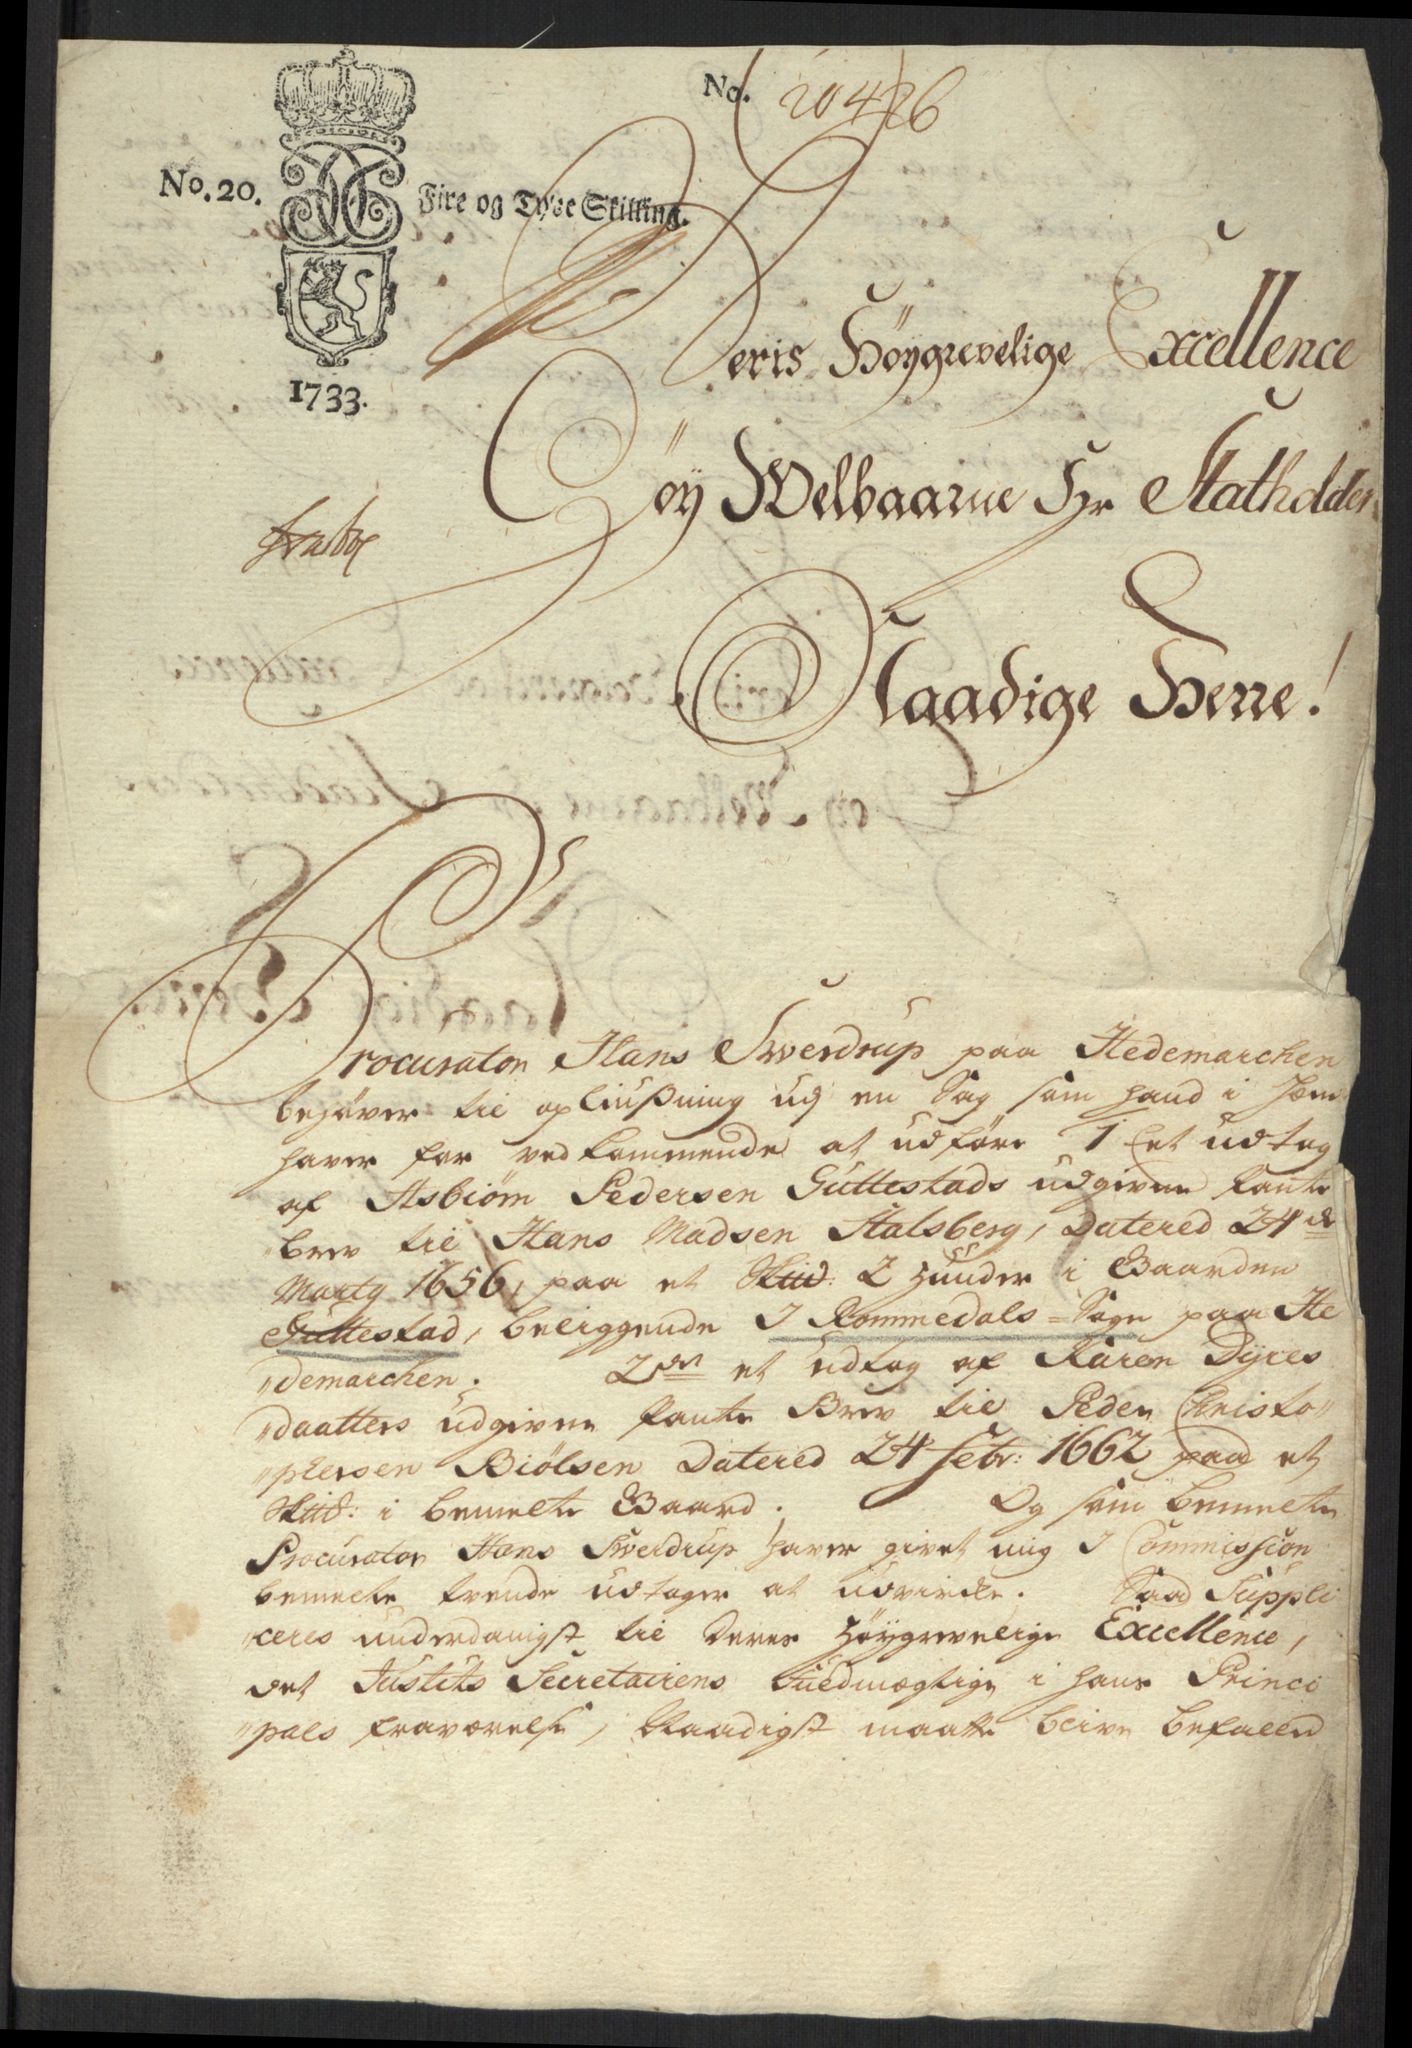 No. 20426
No. 20. Fire og Tyve Skilling.
1733.
Deris Höygrevelige Excellence
Höy Welbaarne Hr Statholder
Naadige Herre!
Procurator Hans Swerdrup paa Hedemarchen
behöver til opliusßning udj en Sag som hand i
haver for vedkommende at udföre 1 et udtog
af Asbiörn Pedersen Guttestads udgivne Pante
"brev til Hans Madsen Stalsberg, Datered 24de
Marty 1656, paa et 2 Hunder i Gaarden
Guttestad, beliggende I Rommedals Sogn paa He
"demarchen. 2den et udtog af Karen Dyres
"daatters udgivne Pante Brev til Peder Christo"
"phersen Biölsen Datered 24 Febr: 1662 paa et
i bemelte Gaard. Og som bemelte
Procurator Hans Swerdrup haver givet mig I Commission
bemelte tvende udtoger at udvirche. Saa Suppli
"ceres underdanigst til Deres Höygrevelige Excellence,
det Justits Secretairens Fuldmægtige i hans Princi
"pals fraværelse, Naadigst maatte blive befalet